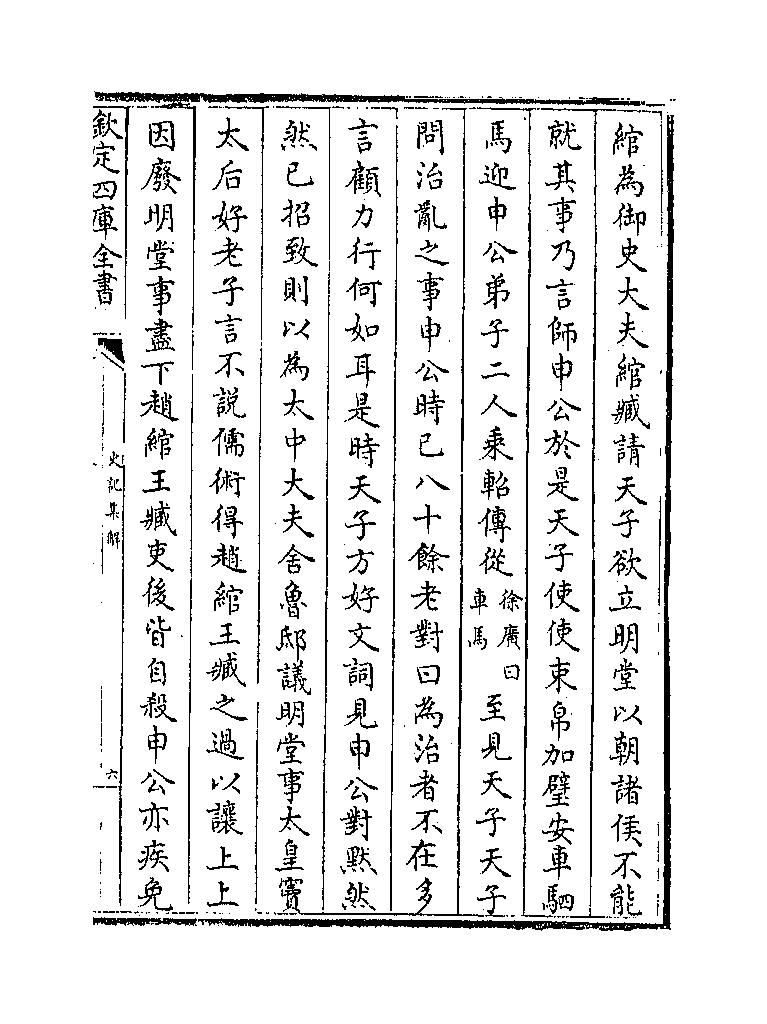 綰為御史大夫綰臧請天子欲立明堂以朝諸侯不能
就其事乃言師申公於是天子使使束帛加璧安車駟
馬迎申公弟子二人乘軺傳從徐廣曰車馬至見天子天子
問治亂之事申公時已八十餘老對曰為治者不在多
言顧力行何如耳是時天子方好文詞見申公對默然
然已招致則以為太中大夫舍魯邸議明堂事太皇竇
太后好老子言不說儒術得趙綰王臧之過以讓上上
因廢明堂事盡下趙綰王臧吏後皆自殺申公亦疾免
欽定四庫全書
史記集解
六